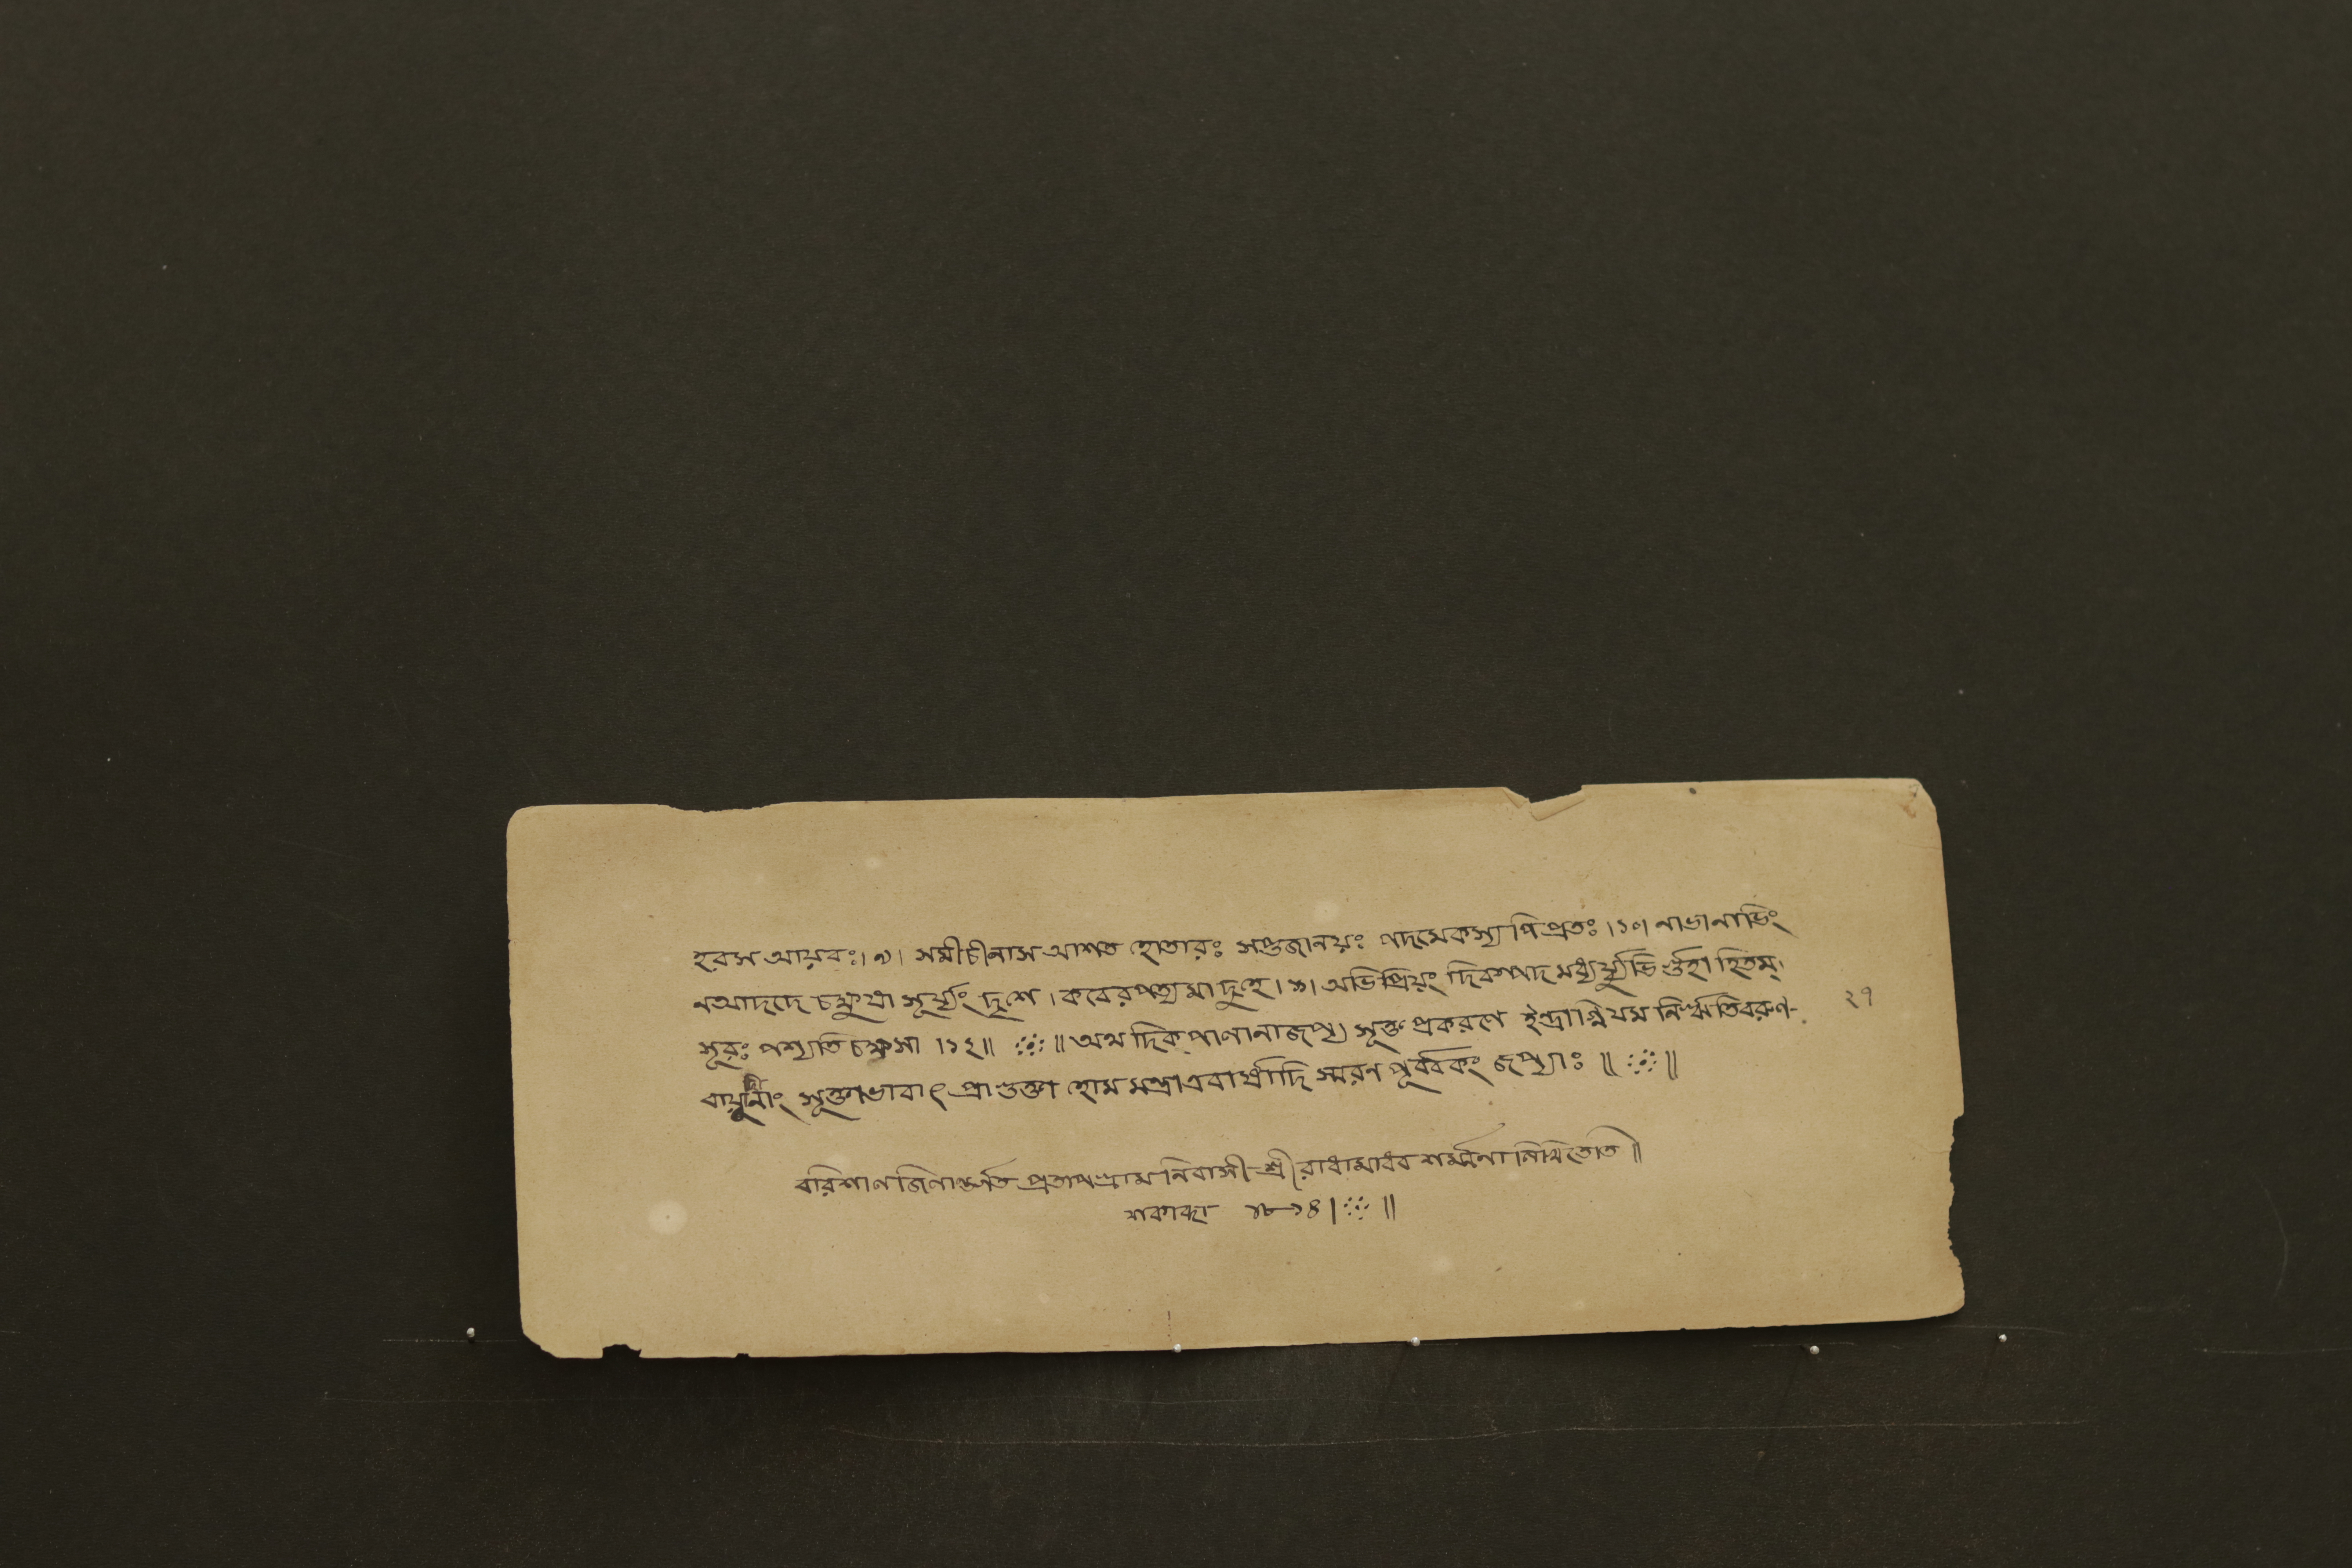 হরস আয়বঃ।৯। সমীচীনাস আশত হোতারঃ সপ্তজানয়ঃ পদমেকস্য পিপ্রতঃ।১০। নাভানাভিং
নআদদে চক্ষুষা সূর্য্যং দৃশে। কবেরপত্যমাদুহে।১১। অভিপ্রিয়ং দিবস্পদমধ্বর্য্যুভির্গুহাহিতম্।
সূরঃ পশ্যতি চক্ষসা।১২॥ ॥ অথ দিক্পালানাজপ্য সূক্ত প্রকরণে ইন্দ্রাগ্নিযম নিঋতিবরুণ-
সূক্তাভাবাৎ প্রাগুক্তা হোম মন্ত্রাএবার্ষাদি স্মরণ পূর্ব্বকং জপ্যাঃ॥ ॥
বরিশাল জিলান্তর্গত প্রতাপগ্রাম নিবাসী শ্রীরাধামাধব শর্ম্মণা লিখিতেতি॥
শকাব্দা ১৮১৪। ॥
২৭